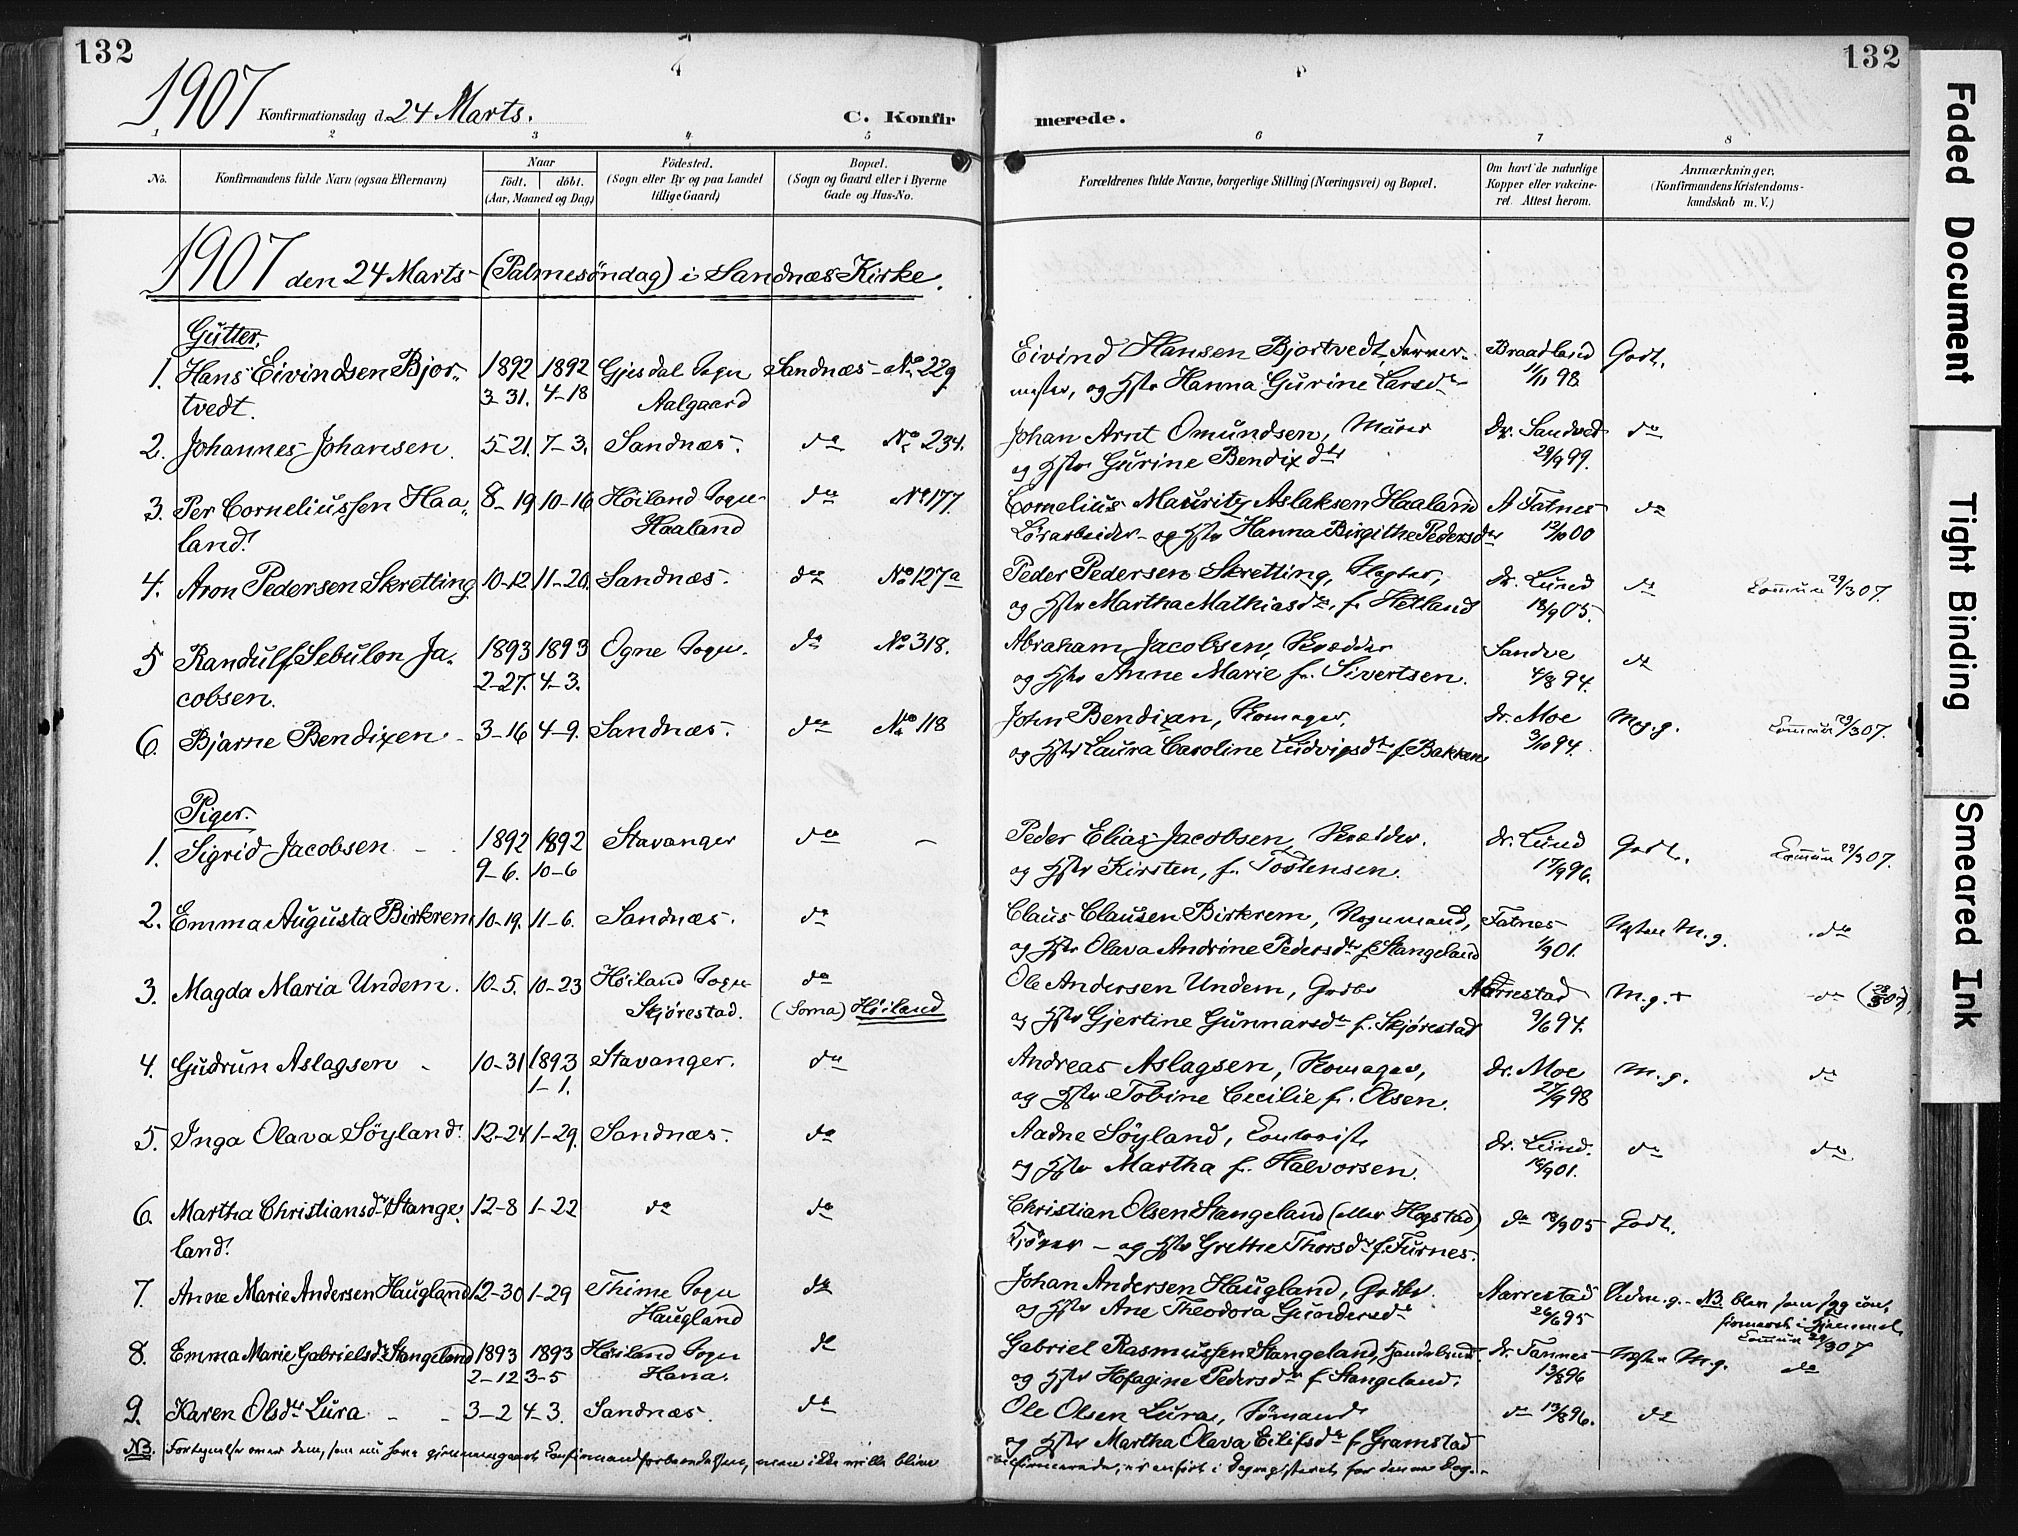 132
132
1907 Konfirmationsdag d. 24 Marts.
C. Konfir
merede.
1 2 3 4 5 6 7 8
No.
Konfirmandens fulde Navn (ogsaa Efternavn)
Naar
født. døbt.
(Aar, Maaned og Dag)
Fødested.
(Sogn eller By og paa Landet
tillige Gaard)
Bopæl.
(Sogn og Gaard eller i Byerne
Gade og Hus-No.
Forældrenes fulde Navne, borgerlige Stilling (Næringsvei) og Bopæl.
Om havt de naturlige
Kopper eller vakcine-
ret. Attest herom.
Anmærkninger.
(Konfirmandens Kristendoms-
kundskab m. V.)
1907 den 24 Marts (Palmesöndag) i Sandnæs Kirke.
Gutter.
1. Hans Eivindsen Bjor- 1892 1892 Gjesdal Sogn Sandnæs - No 229 Eivind Hansen Bjortvedt, Braadland Godt.
tvedt. 3-31. 4-18 Aalgaard og Hstr Hanna Gurine Larsdr 11/11 98
2. Johannes Johansen. 5-21. 7-3. Sandnæs. do No 234. Johan Arnt Omundsen, Murer Dr. Sandved do
og Hstr Gurine Bendixdtr 29/9 99.
3. Per Corneliussen Haa- 8-19 10-16 Höiland Sogn do No 177 Cornelius Mauritz Aslaksen Haaland A Tatnes do
land. Haaland og Hstr Hanna Birgithe Pedersdtr 12/10 00
4. Aron Pedersen Skretting 10-12 11-20. Sandnæs. do No 127a Peder Pedersen Skretting, Slagter, Dr. Lund do 29/3 07.
og Hstr Martha Mathiasdtr f. Hetland 18/9 05.
5 Randulf Sebulon Ja- 1893 1893 Ogne Sogn. do No 318. Abraham Jacobsen, Skrædder Sandve do
cobsen. 2-27. 4-3. og Hstr Anne Marie f. Sivertsen. 4/8 94.
6. Bjarne Bendixen 3-16 4-9. Sandnæs. do No 118 John Bendixen, Skomager. Dr. Moe M.g. 29/3 07.
og Hstr Laura Caroline Ludvigsdtr f. Bakken 3/10 94.
Piger.
1. Sigrid Jacobsen 1892 1892 Stavanger do - Peder Elias Jacobsen, Skrædder. Dr. Lund Godt. 29/3 07.
9-6. 10-6 og Hstr Kirsten, f. Tostensen. 17/9 96.
2. Emma Augusta Birkrem 10-19. 11-6. Sandnæs. do Claus Clausen Birkrem, Vognmand, Tatnes Næsten M.g. do
og Hstr Olava Andrine Pedersdtr f. Stangeland 1/9 01.
3. Magda Maria Undem. 10-5. 10-23 Höiland Sogn do Ole Andersen Undem, Gdbr Aarrestad M.g.+ do (28/3 07)
Skjørestad. (Soma) Höiland og Hstr Gjertine Gunnarsdr f. Skjørestad 9/6 94.
4. Gudrun Aslagsen 10-31 1893 Stavanger. do Andreas Aslagsen, Skomager, Dr. Moe M.g. do
1-1. og Hstr Tobine Cecilie f. Olsen. 27/9 98
5. Inga Olava Söyland 12-24 1-29. Sandnæs. do Aadne Söyland, Dr. Lund. do do
og Hstr Martha f. Halvorsen. 18/9 01.
6. Martha Christiansdr Stange- 12-8 1-22 do do Christian Olsen Stangeland (eller Hogstad) do 18/9 05 Godt.
land. Kjører - og Hstr Grethe Thorsdr f. Furnes.
7. Anne Marie Andersen Haugland 12-30 1-29 Thime Sogn do Johan Andersen Haugland, Gdbr. Aarrestad Udm.g. - NB. blev
Haugland og Hstr Ane Theodora Gundersdr 26/6 95 29/3 07
8. Emma Marie Gabrielsdr Stangeland 1893 1893 Höiland Sogn do Gabriel Rasmussen Stangeland, Dr. Tannes Næsten M.g. do
2-12 3-5 Hana. og Hstr Pedersdr f. Stangeland. 13/8 96
9. Karen Olsdtr Lura 3-2 4-3. Sandnæs. do Ole Olsen Lura, Sömand do 13/8 96. do
og Hstr Martha Olava Eilifsdr f. Gramstad
NB. Fortegnelse over dem, som nu have gjennemgaaet Confirmandforberedelsen, men ikke ville blive
confirmerede, er anført i Dagregisteret for denne Dag.
Faded Document
Tight Binding
Smeared Ink